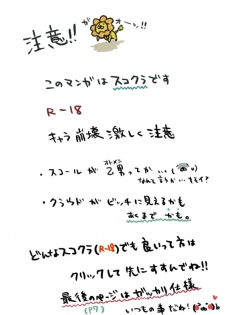 注意!! ガオーッ!!
このマンガはスコクラです
R-18
キャラ崩壊激しく注意
・スコールが乙男ってか…
オトメン
なんて言うか…キモイ?
・クラウドがビッチに見えるかも
あくまでかも。
どんなスコクラ(R-18)でも良いって方は
クリックして先にすすんでね!!
最後のページはガッカリ仕様
(P7) いつもの事だね!